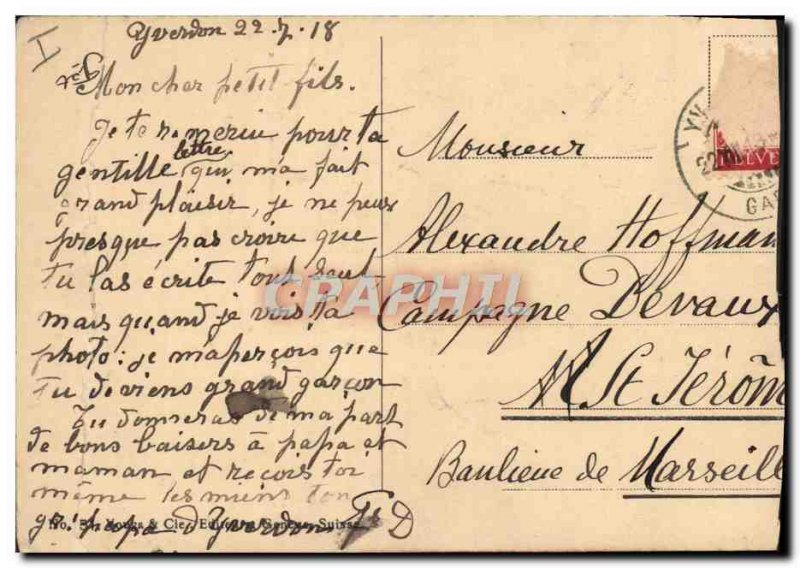 I
Yverdon 22.7.18
Mon cher petit fils.
Je te remercie pour ta
gentille lettre qui m'a fait
grand plaisir, je ne peux
presque pas croire que
tu las écrite tout seul
mais quand je vois ta
photo: je m'aperçois que
tu deviens grand garçon
Tu donneras de ma part
de bons baisers à papa et
maman et reçois toi
même les miens ton
gr papa d'Yverdon F D
Editeurs Genève, Suisse
CRAPHIL
Monsieur
Alexandre Hoffman
Campagne Devaux
St Jérôm
Banlieue de Marseill
YV
22
GA
HELVE